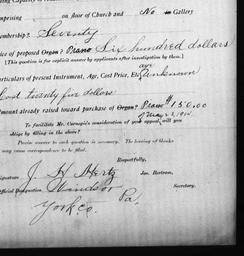 mprising on floor of Church and No in Gallery
embership? Seventy
ice of proposed Organ? Piano Six hundred dollars
[This question is for explicit answer by applicants after investigation by them.]
articulars of present Instrument, Age, Cost Price, Etc. Age Unknown
Cost twenty five dollars
mount already raised toward purchase of Organ? Piano $150.00
May 2, 19
To facilitate Mr. Carnegie's consideration of your appeal, will you
oblige by filling in the above?
Precise answer to each question is necessary. The leaving of
may cause correspondence to be filed.
Respectfully,
Signature J. H. Hertz Jas. Bertram,
Official Designation Secretary.
Windsor
York Co. Pa.